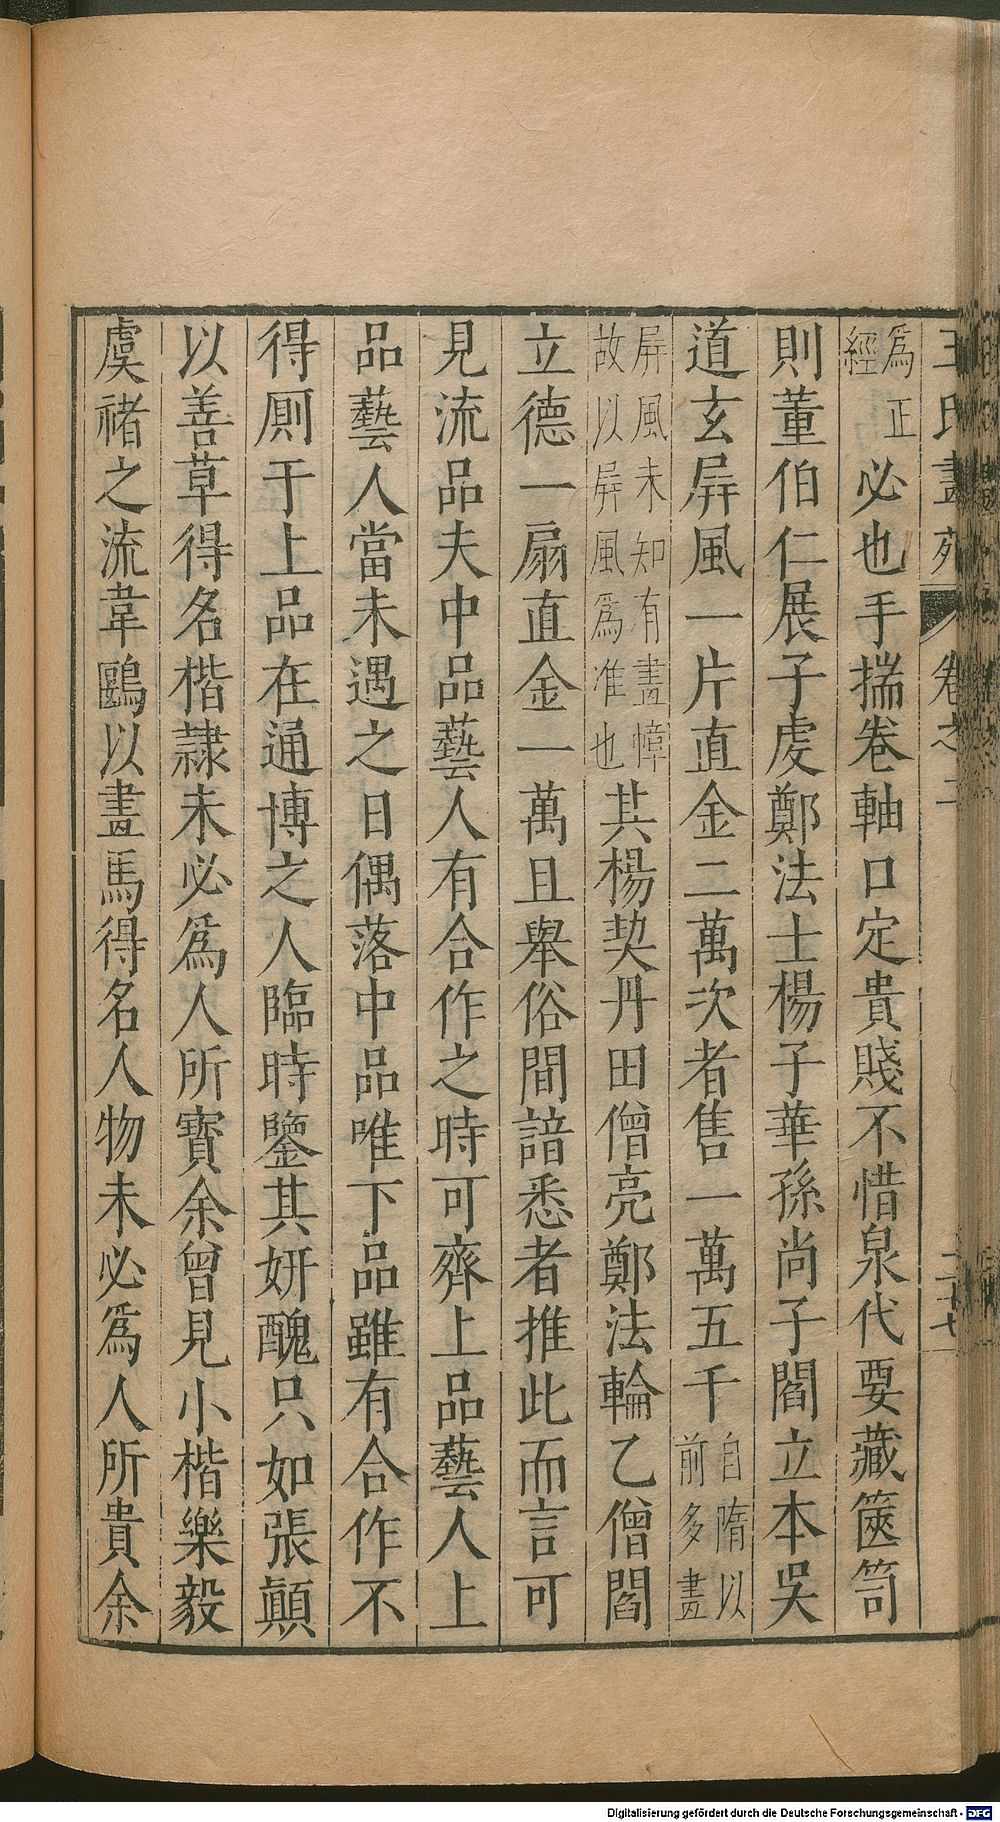 王氏畫苑 卷之二 二十七
爲正經必也手揣卷軸口定貴賤不惜泉代要藏篋笥
則董伯仁展子虔鄭法士楊子華孫尚子閻立本吳
道玄屏風一片直金二萬次者售一萬五千自隋以前多畫
屏風未知有畫幛故以屏風爲准也其楊契丹田僧亮鄭法輪乙僧閻
立德一扇直金一萬且舉俗間諳悉者推此而言可
見流品夫中品藝人有合作之時可齊上品藝人上
品藝人當未遇之日偶落中品唯下品雖有合作不
得厠于上品在通博之人臨時鑒其妍醜只如張顛
以善草得名楷隷未必爲人所寳余曾見小楷樂毅
虞褚之流韋鷗以畫馬得名人物未必爲人所貴余
Digitalisierung gefördert durch die Deutsche Forschungsgemeinschaft - DFG